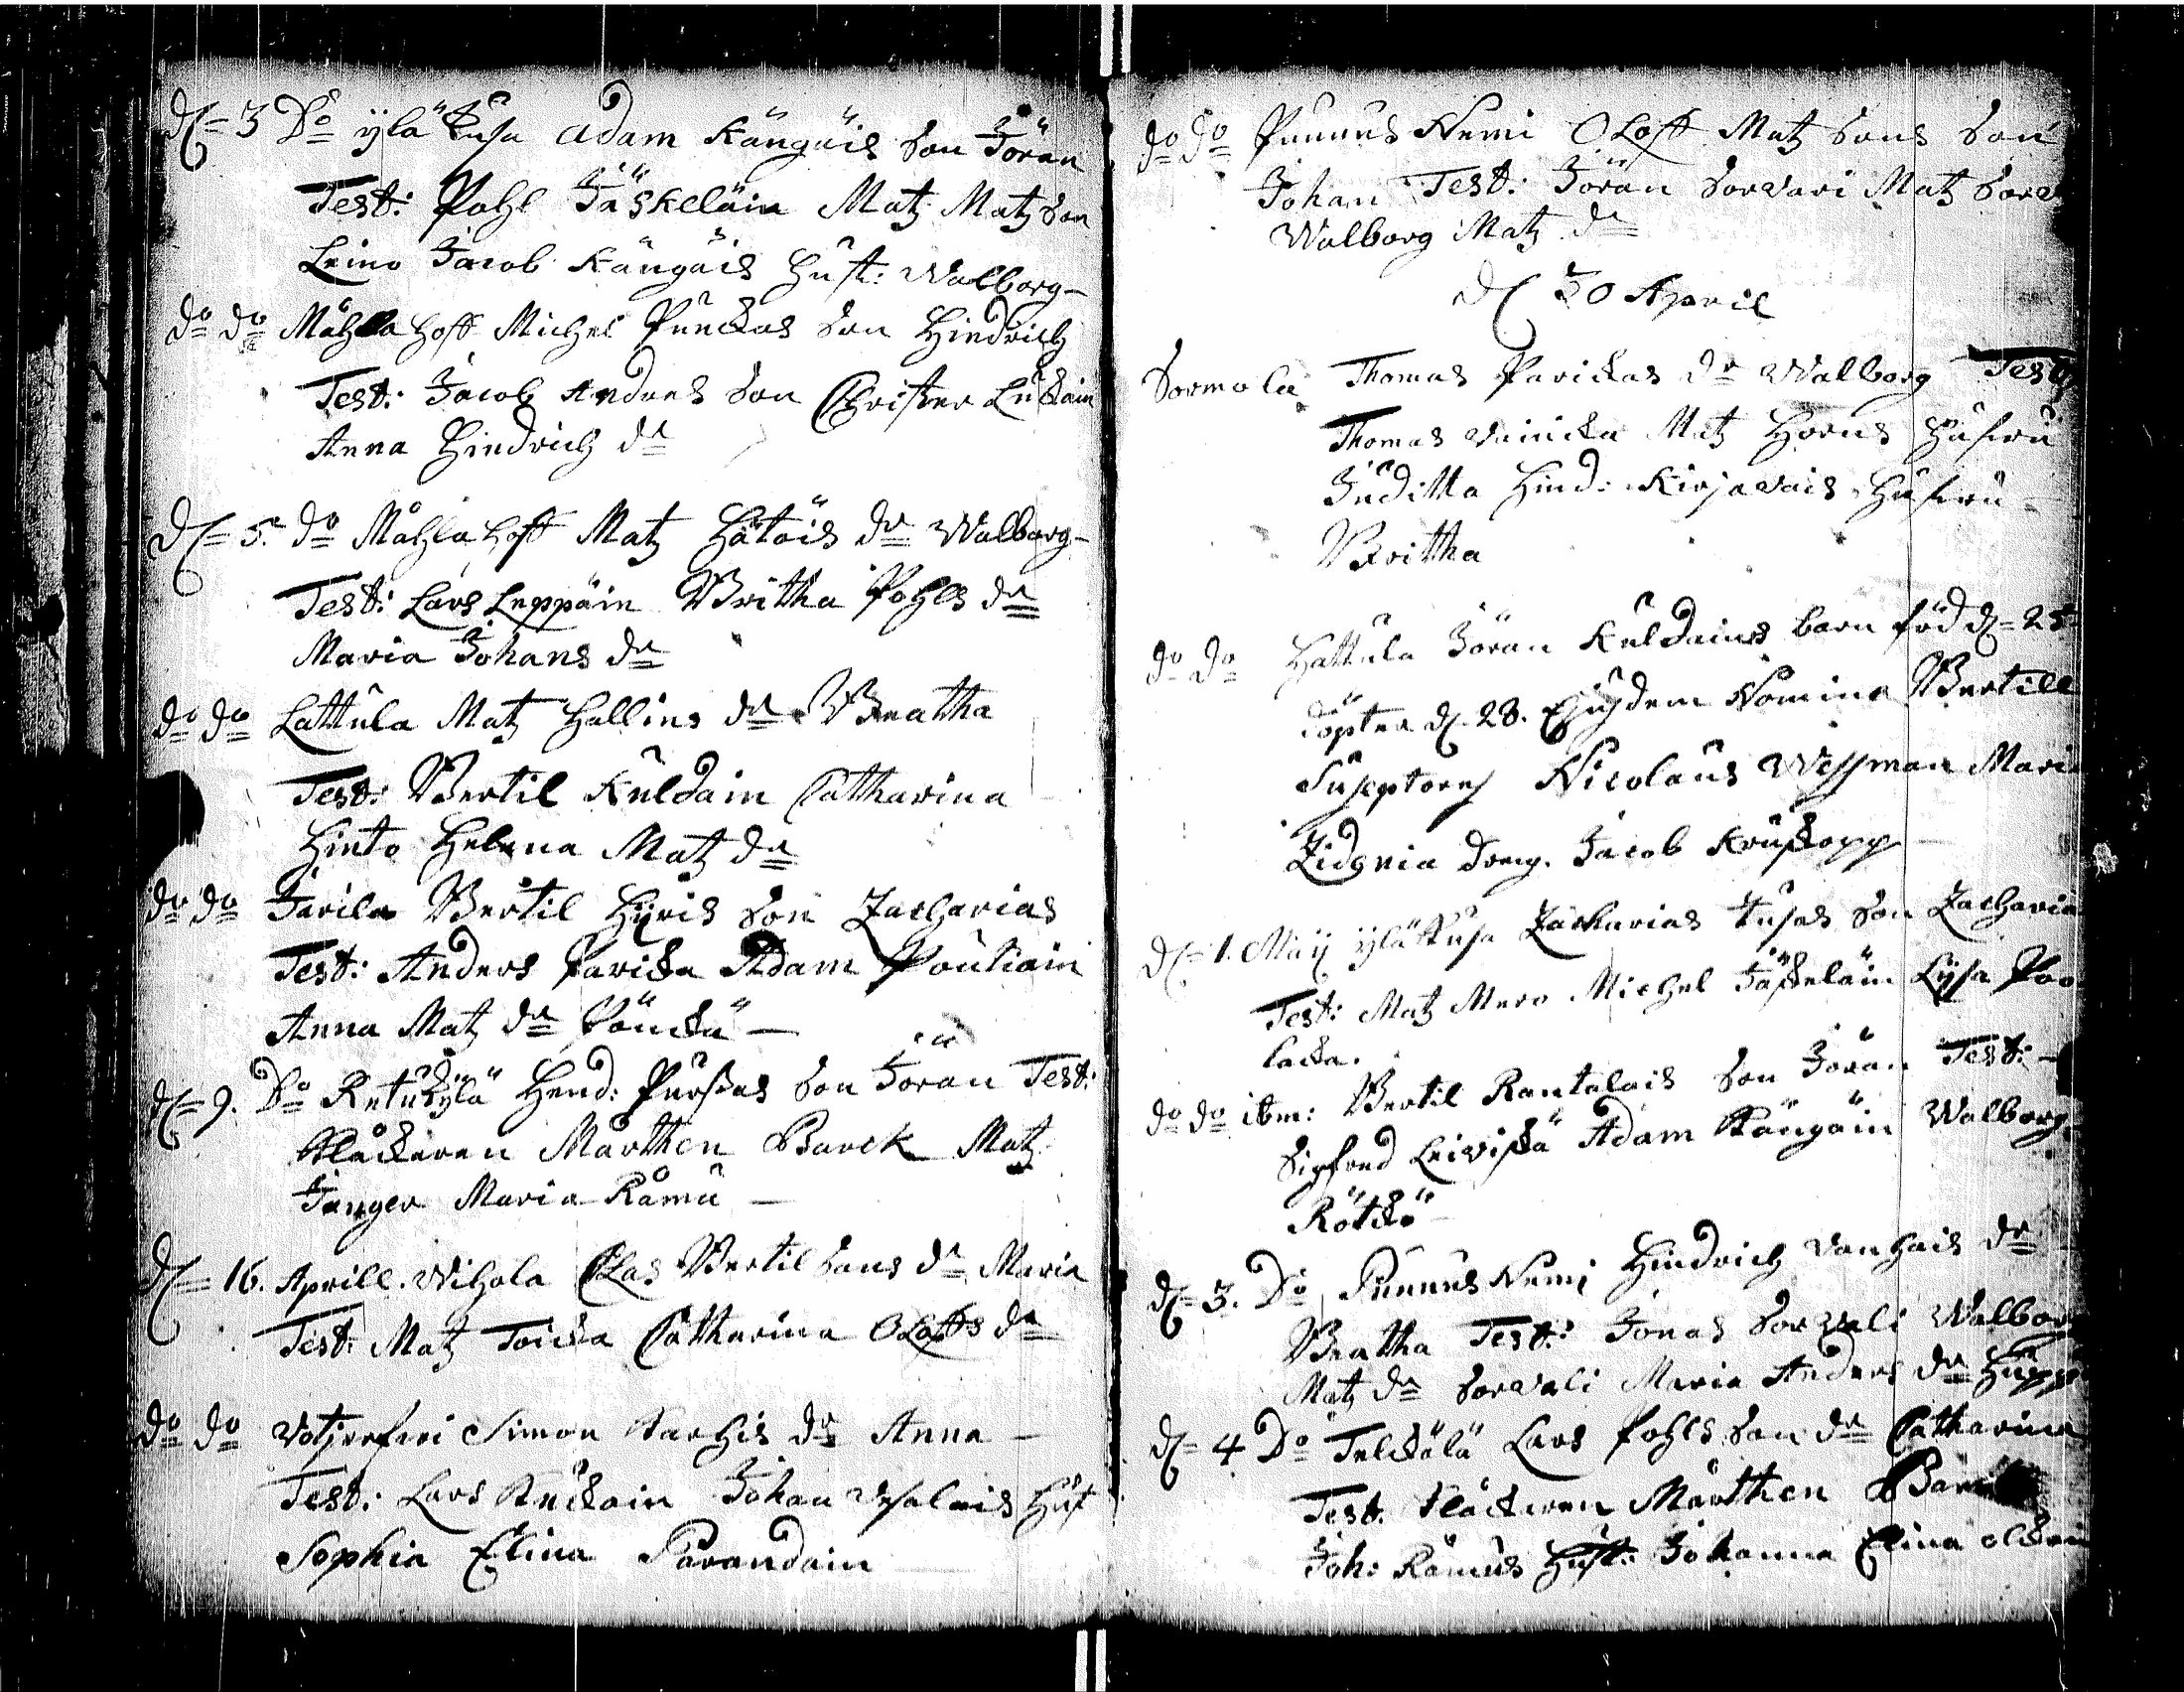 d. 3 Do ylä Kusa Adam Kängäis Son Jöran
Test: Pohl Jäskeläin Matz Matz Son
Leino Jacob Kängäis Hust: Walborg
do do Måhla Hoff Michel Punckas Son Hindrich
Test: Jacob Andres Son Christer Luckain
Anna Hindrich dr
d. 5. do Måhla Hoff Matz Hätöis dr Walborg
Test: Lars Leppäin Britha Pohls dr
Maria Johans dr
do do Lattula Matz Hallins dr Beatha
Test: Bertil Kuldain Catharina
Hinto Helena Matz dr
do do Jarila Bertil Hyris Son Zacharias
Test: Anders Paricka Adam Poutiain
Anna Matz dr Pöuckä
d. 9. Do Retukylä Hend: Purskas Son Jöran Test:
Klåckaren Mårthen Barck Matz
Junger Maria Rämä
d. 16. Aprill. Wihola Clas Bertil Sons dr Maria
Test: Matz Toicka Catharina Oloffs dr
do do Votjerfwi Simon Karhis dr Anna
Test: Lars Kuckain Johan Usalais Hust
Sophia Elina Parandain
do do Punnus Nemi Oloff Matz Sons Son
Johan Test: Jöran Sorvari Matz Sorv
Walborg Matz dr
d 30 April
Sormola Thomas Parickas dr Walborg Test:
Thomas Vainicka Matz Horns Hustru
Juditta Hind: Kirjavais Hustru
Britha
do do Hattula Jöran Kuldains barn föd d. 25
döptes d. 28. Ejusdem Nomine Bertill
Susceptores Nicolaus Wessman Mari
Zidenia dreng. Jacob Kruskopp
d. 1. Maij yläkusa Zacharias Kusas Son Zacharia
Test: Matz Mero Michel Jäskeläin Lysa Poo
lacka.
do do ibm: Bertil Rantalais Son Jöran Test:
Sigfred Leiviskä Adam Kängäin Walborg
Rötckö
d. 3. Do Punnus Nemi Hindrich Vanhais dr
Beatha Test: Jonas Sorvali Walborg
Matz dr Sorvali Maria Anders dr Huppo
d. 4 Do Telckälä Lars Pohls Son dr Catharina
Test: Klåckaren Mårthen Bar
Joh: Rämüs Hust: Johanna Elina